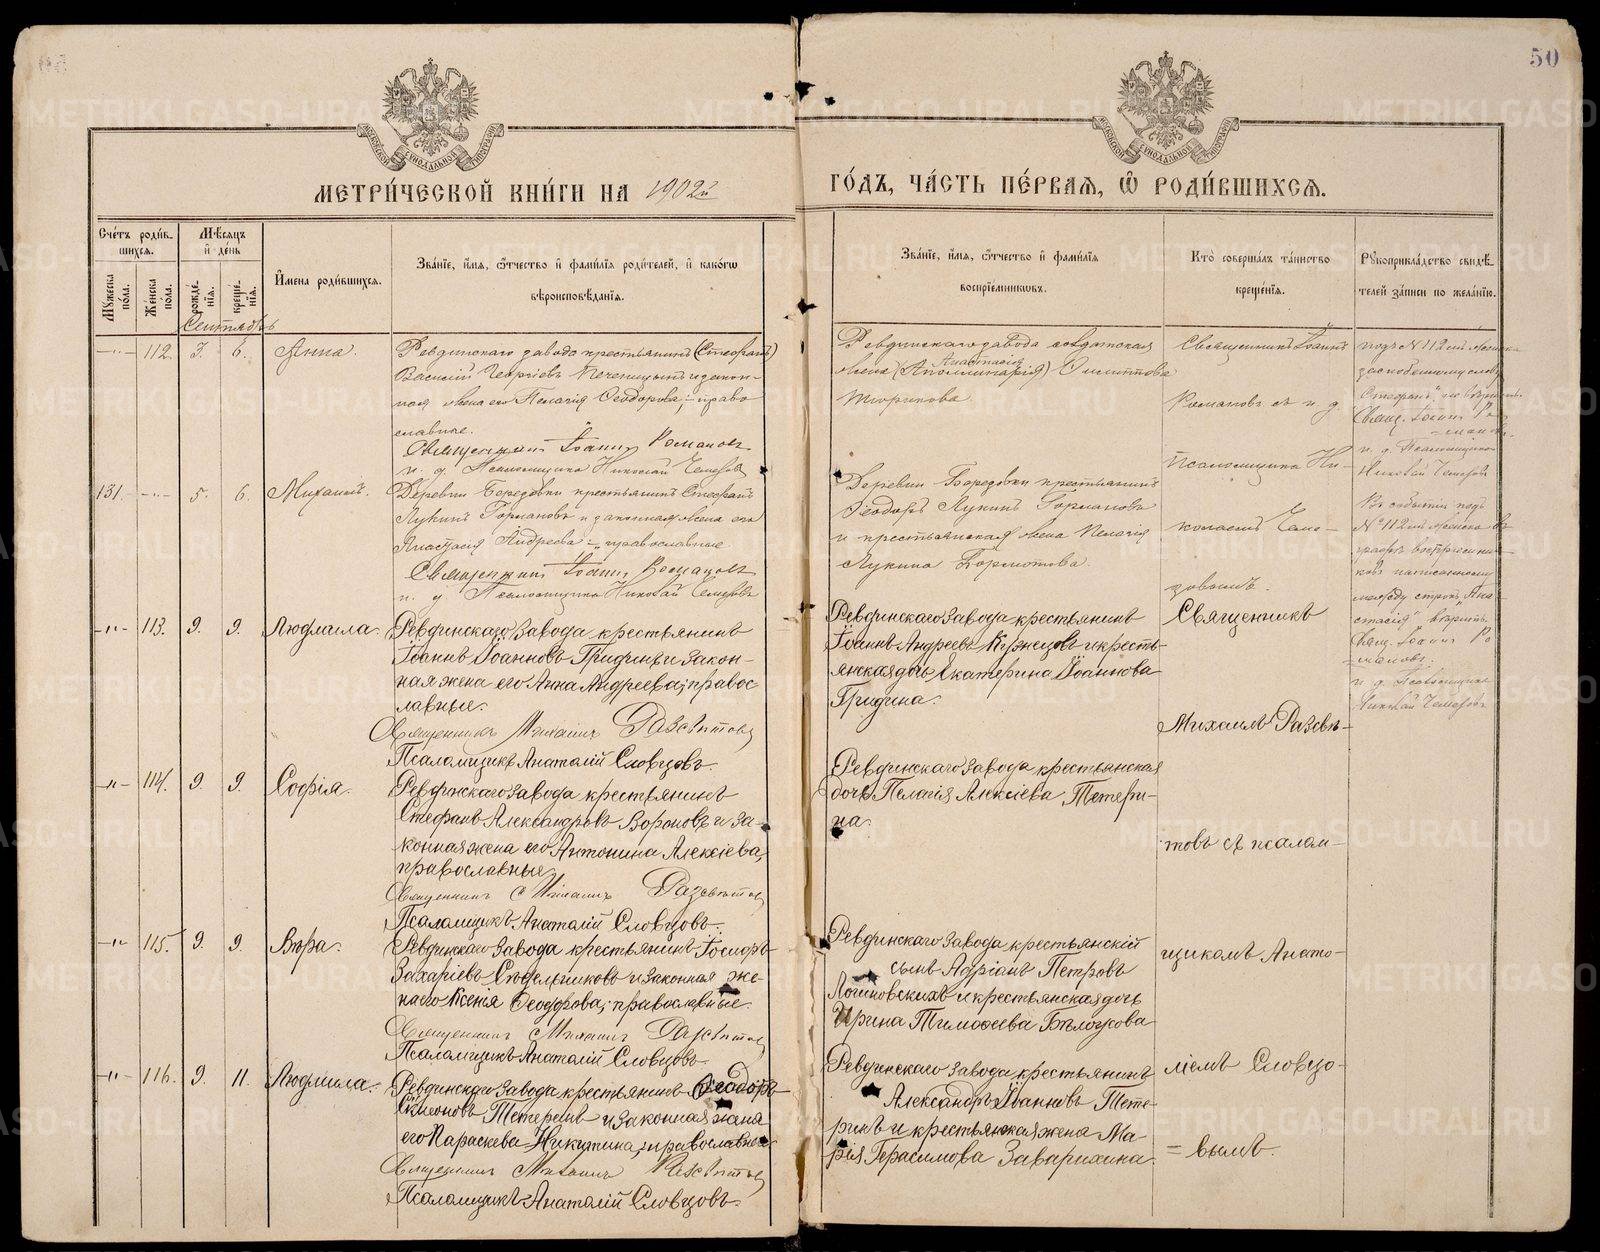 50
МЕТРИ́ЧЕСКОЙ КНИ́ГИ НА 1902й
ГО́ДЪ, ЧА́СТЬ ПЕ́РВАѦ, Ѿ РОДИ́ВШИХСѦ.
Сче́тъ роди́в-
шихсѧ.
Мꙋжеска по́ла.
Же́нска по́ла.
Мѣ́сѧцъ и҆ де́нь
рожде́-
нїѧ.
креще́-
нїѧ.
И҆мена роди́вшихсѧ.
Зва́нїе, и҆́мѧ, ѻ҆́тчество и҆ фами́лїѧ роди́телей, и҆ како́гѡ
вѣроисповѣ́данїѧ.
Зва́нїе, и҆́мѧ, ѻ҆́тчество и҆ фами́лїѧ
воспрїе́мникѡвъ.
Кто̀ соверша́лъ та́инство
креще́нїѧ.
Рꙋкоприкла́дство свидѣ́-
телей за́писи по жела́нїю.
Сентябрь
112. 3. 6. Анна.
Ревдинскаго завода крестьянинъ (Стефанъ)
Василій Георгіевъ Печеницынъ и закон-
ная жена его Пелагія Ѳеодорова; право
славные.
Священникъ Іоаннъ Романовъ
и. д. Псаломщика Николай Чемезовъ
Ревдинскаго завода солдатская
Анастасія
жена (Аполлинарія) Филиппова
Тюрикова.
Священникъ Іоаннъ
Романовъ съ и. д.
псаломщика Ни-
колаемъ Чеме-
зовымъ.
подъ № 112
Стефанъ
Свящ. Іоаннъ Ро-
мановъ.
и. д. Псаломщика
Николай Чемезовъ
131. 5. 6. Михаилъ.
Деревни Бередовки крестьянинъ Стефанъ
Лукинъ Гормановъ и законная жена его
Анастасія Андреева - православные
Священникъ Іоаннъ Романовъ
и. д. Псаломщика Николай Чемезовъ
Деревни Бередовки крестьянинъ
Ѳеодоръ Лукинъ Гормановъ
и крестьянская жена Пелагія
Лукина Бормотова.
№ 112
между строкъ „Ана-
стасія" вѣрить.
Свящ. Іоаннъ Ро
=мановъ.
и. д. Псаломщика
Николай Чемезовъ
-"- 113. 9. 9. Людмила.
Ревдинскаго Завода крестьянинъ
Іоаннъ Іоанновъ Гридинъ и закон-
ная жена его Анна Андреева; правос-
лавные.
Священникъ Михаилъ Разсвѣтовъ
Псаломщикъ Анатолій Словцовъ.
Ревдинскаго Завода крестьянинъ
Іоаннъ Андреевъ Кузнецовъ и кресть-
янская дочь Екатерина Іоаннова
Гридина.
Священникъ
Михаилъ Разсвѣ-
товъ съ псалом-
щикомъ Анато-
ліемъ Словцо-
=вымъ.
-"- 114. 9. 9. Софія.
Ревдинскаго Завода крестьянинъ
Стефанъ Александровъ Вороновъ и за-
конная жена его Антонина Алексіева,
православные
Священникъ Михаилъ Разсвѣтовъ
Псаломщикъ Анатолій Словцовъ.
Ревдинскаго Завода крестьянская
дочь Пелагія Алексіева Тетери-
на.
-"- 115. 9. 9. Вѣра.
Ревдинскаго Завода крестьянинъ Іосифъ
Захаріевъ Сидельниковъ и законная же-
на его Ксенія Ѳеодорова; православные.
Священникъ Михаилъ Разсвѣтовъ
Псаломщикъ Анатолій Словцовъ.
Ревдинскаго Завода крестьянскій
сынъ Адріанъ Петровъ
Логиновскихъ и крестьянская дочь
Ирина Тимоѳеева Бѣлоусова
-"- 116. 9. 11. Людмила.
Ревдинскаго Завода крестьянинъ Ѳеодоръ
Симеоновъ Тетеринъ и законная жена
его Параскева Никитина; православные
Священникъ Михаилъ Разсвѣтовъ
Псаломщикъ Анатолій Словцовъ.
Ревдинскаго Завода крестьянинъ
Александръ Іоанновъ Тете-
ринъ и крестьянская жена Ма-
рія Герасимова Заварихина.
METRIKI.GASO-URAL.RU